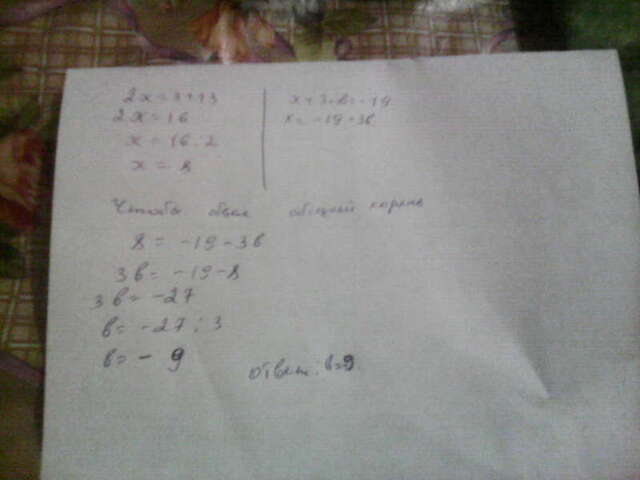 2x=3+13
2x=16
x=16:2
x=8
x+3·в=-19
x=-19-3в
Чтобы был общий корень
8=-19-3в
3в=-19-8
3в=-27
в=-27:3
в=-9
ответ: в=9